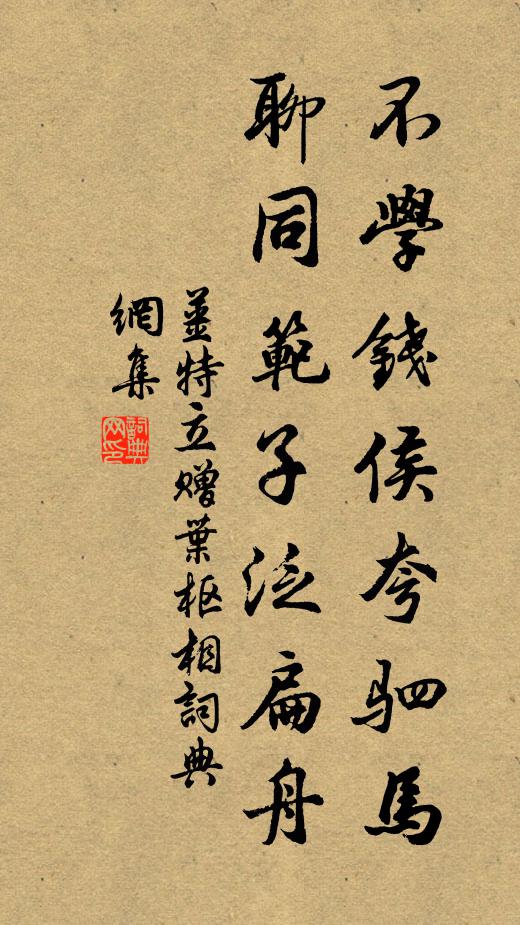 不學錢侯夸駟馬
聊同範子泛扁舟
薑特立贈葉枢相詞典
網集
詞典
网印